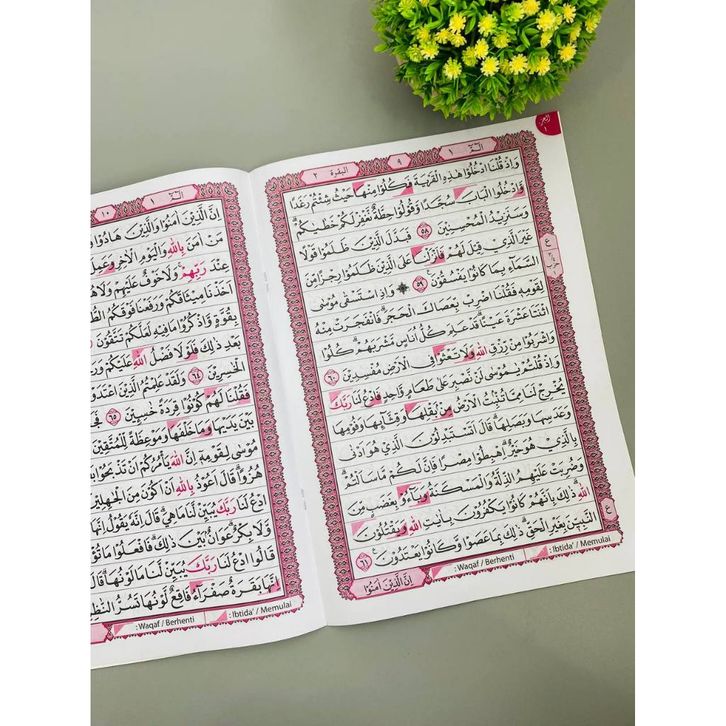 البقرة ٢
٩
الم ١
وَاِذْ قُلْنَا ادْخُلُوْا هٰذِهِ الْقَرْيَةَ فَكُلُوْا مِنْهَا حَيْثُ شِئْتُمْ رَغَدًا
وَّادْخُلُوا الْبَابَ سُجَّدًا وَّقُوْلُوْا حِطَّةٌ نَّغْفِرْ لَكُمْ خَطٰيٰكُمْ ۗ
وَسَنَزِيْدُ الْمُحْسِنِيْنَ ٥٨ فَبَدَّلَ الَّذِيْنَ ظَلَمُوْا قَوْلًا
غَيْرَ الَّذِيْ قِيْلَ لَهُمْ فَاَنْزَلْنَا عَلَى الَّذِيْنَ ظَلَمُوْا رِجْزًا مِّنَ
السَّمَاۤءِ بِمَا كَانُوْا يَفْسُقُوْنَ ࣖ ٥٩ ۞ وَاِذِ اسْتَسْقٰى مُوْسٰى
لِقَوْمِهٖ فَقُلْنَا اضْرِبْ بِّعَصَاكَ الْحَجَرَ ۗ فَانْفَجَرَتْ مِنْهُ
اثْنَتَا عَشْرَةَ عَيْنًا ۗ قَدْ عَلِمَ كُلُّ اُنَاسٍ مَّشْرَبَهُمْ ۗ كُلُوْا
وَاشْرَبُوْا مِنْ رِّزْقِ اللّٰهِ وَلَا تَعْثَوْا فِى الْاَرْضِ مُفْسِدِيْنَ ٦٠
وَاِذْ قُلْتُمْ يٰمُوْسٰى لَنْ نَّصْبِرَ عَلٰى طَعَامٍ وَّاحِدٍ فَادْعُ لَنَا رَبَّكَ
يُخْرِجْ لَنَا مِمَّا تُنْۢبِتُ الْاَرْضُ مِنْۢ بَقْلِهَا وَقِثَّاۤىِٕهَا وَفُوْمِهَا
وَعَدَسِهَا وَبَصَلِهَا ۗ قَالَ اَتَسْتَبْدِلُوْنَ الَّذِيْ هُوَ اَدْنٰى
بِالَّذِيْ هُوَ خَيْرٌ ۗ اِهْبِطُوْا مِصْرًا فَاِنَّ لَكُمْ مَّا سَاَلْتُمْ ۗ
وَضُرِبَتْ عَلَيْهِمُ الذِّلَّةُ وَالْمَسْكَنَةُ وَبَاۤءُوْ بِغَضَبٍ مِّنَ
اللّٰهِ ۗ ذٰلِكَ بِاَنَّهُمْ كَانُوْا يَكْفُرُوْنَ بِاٰيٰتِ اللّٰهِ وَيَقْتُلُوْنَ
النَّبِيّٖنَ بِغَيْرِ الْحَقِّ ۗ ذٰلِكَ بِمَا عَصَوْا وَّكَانُوْا يَعْتَدُوْنَ ࣖ ٦١
اِنَّ الَّذِيْنَ اٰمَنُوْا
: Waqaf / Berhenti
: Ibtida' / Memulai
الم ١
١٠
اِنَّ الَّذِيْنَ اٰمَنُوْا وَالَّذِيْنَ هَادُوْا
مَنْ اٰمَنَ بِاللّٰهِ وَالْيَوْمِ الْاٰخِرِ وَعَمِلَ
عِنْدَ رَبِّهِمْ ۚ وَلَا خَوْفٌ عَلَيْهِمْ وَلَا
اَخَذْنَا مِيْثَاقَكُمْ وَرَفَعْنَا فَوْقَكُمُ
بِقُوَّةٍ وَّاذْكُرُوْا مَا فِيْهِ لَعَلَّكُمْ تَتَّقُوْنَ
بَعْدِ ذٰلِكَ ۚ فَلَوْلَا فَضْلُ اللّٰهِ عَلَيْكُمْ
الْخٰسِرِيْنَ ٦٤ وَلَقَدْ عَلِمْتُمُ الَّذِيْنَ اعْتَدَوْا
فَقُلْنَا لَهُمْ كُوْنُوْا قِرَدَةً خَاسِـِٕيْنَ ٦٥
بَيْنَ يَدَيْهَا وَمَا خَلْفَهَا وَمَوْعِظَةً لِّلْمُتَّقِيْنَ
مُوْسٰى لِقَوْمِهٖٓ اِنَّ اللّٰهَ يَأْمُرُكُمْ اَنْ تَذْبَحُوْا
هُزُوًا ۗ قَالَ اَعُوْذُ بِاللّٰهِ اَنْ اَكُوْنَ مِنَ الْجٰهِلِيْنَ
ادْعُ لَنَا رَبَّكَ يُبَيِّنْ لَّنَا مَا هِيَ ۗ قَالَ اِنَّهٗ يَقُوْلُ
وَّلَا بِكْرٌ ۗ عَوَانٌۢ بَيْنَ ذٰلِكَ ۗ فَافْعَلُوْا مَا
قَالُوا ادْعُ لَنَا رَبَّكَ يُبَيِّنْ لَّنَا مَا لَوْنُهَا ۗ قَالَ
اِنَّهَا بَقَرَةٌ صَفْرَاۤءُ فَاقِعٌ لَّوْنُهَا تَسُرُّ
: Waqaf / Berhenti
: Ibtida' / Memulai